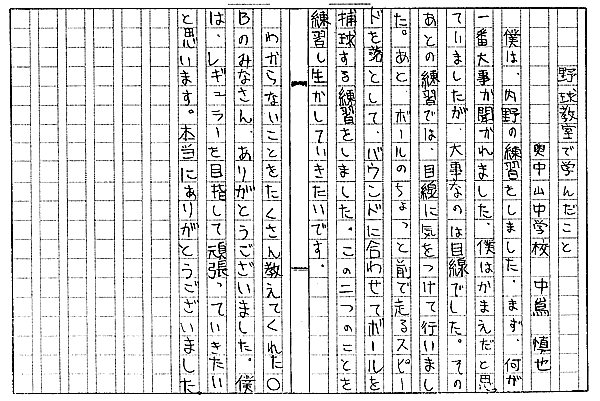 野球教室で学んだこと
奥中山中学校 中嶌 慎也
僕は、内野の練習をしました。まず、何が
一番大事か聞かれました。僕はかまえだと思っ
ていましたが、大事なのは目線でした。その
あとの練習では、目線に気をつけて行いまし
た。あと、ボールのちょっと前で走るスピー
ドを落として、バウンドに合わせてボールを
捕球する練習をしました。この二つのことを
練習し生かしていきたいです。
わからないことをたくさん教えてくれたO
Bのみなさん、ありがとうございました。僕
は、レギュラーを目指して頑張っていきたい
と思います。本当にありがとうございました